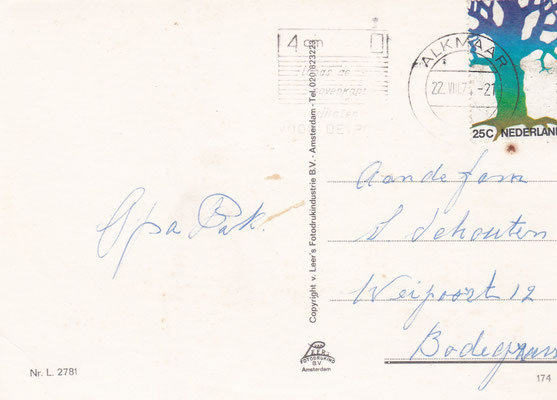 4 cm
ALKMAAR
22. VIII.7 -21
25C NEDERLAND
Opa Pak.
Aan de fam
S Schouten
Weipoort 12
Bodegrav
Copyright v. Leer's Fotodrukindustrie B.V. - Amsterdam - Tel. 020/823223
van
LEER'S
FOTODRUKIND
B.V
Amsterdam
Nr. L. 2781
174